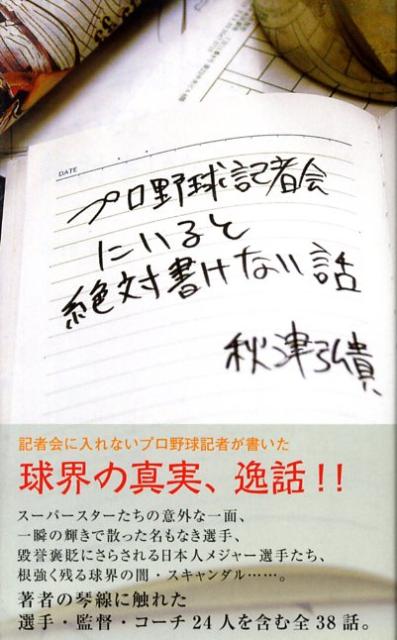 DATE
プロ野球記者会
にいると
絶対書けない話
秋津弘貴
記者会に入れないプロ野球記者が書いた
球界の真実、逸話!!
スーパースターたちの意外な一面、
一瞬の輝きで散った名もなき選手、
毀誉褒貶にさらされる日本人メジャー選手たち、
根強く残る球界の闇・スキャンダル……。
著者の琴線に触れた
選手・監督・コーチ24人を含む全38話。